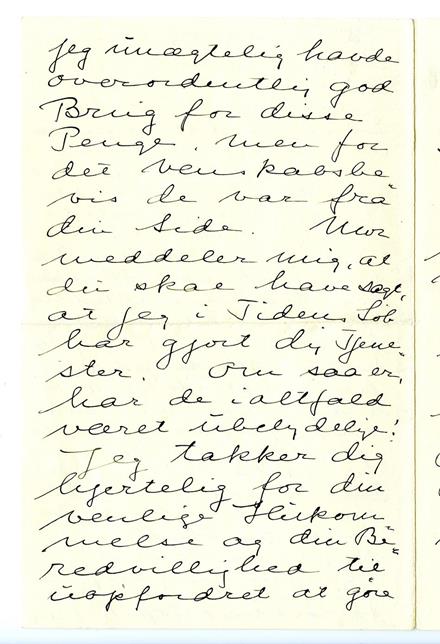 jeg unægtelig havde
overordentlig god
Brug for disse
Penge, men for
det venskabsbe-
vis de var fra
din Side. Mor
meddeler mig, at
du skal have sagt,
at jeg i Tidens Løb
har gjort dig Tjene-
ster. Om saa er,
har de i altfald
været ubetydelige!
Jeg takker dig
hjertelig for din
venlige Hukom
melse og din Be-
redvillighed til
uopfordret at gøre